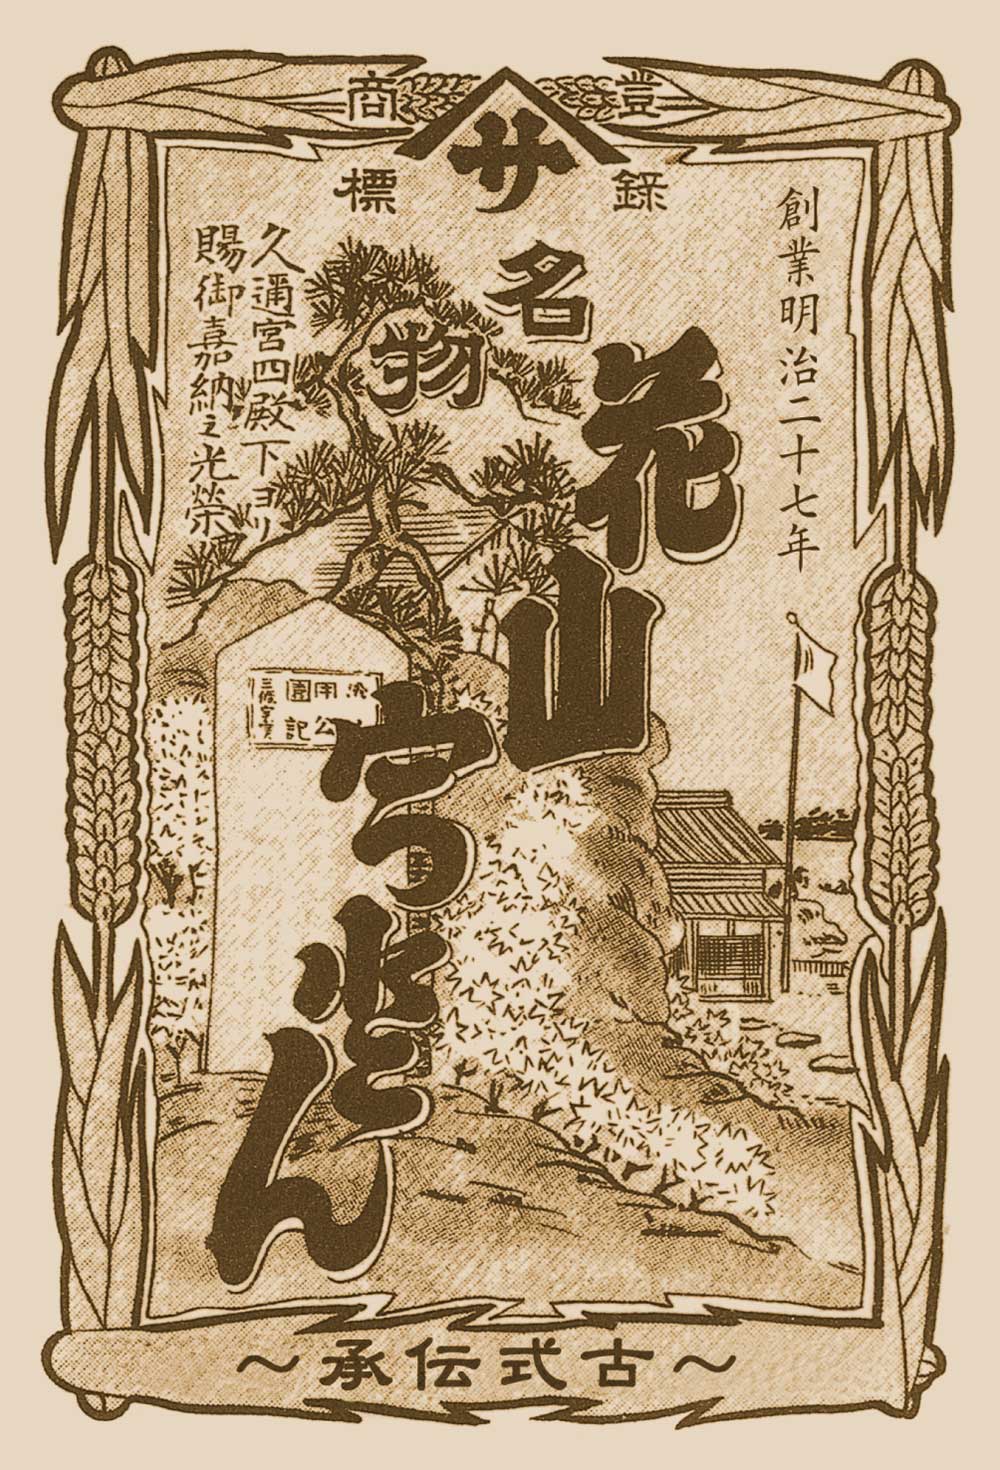 登錄
商標
サ
創業明治二十七年
名物
花山うどん
久邇宮四殿下ヨリ
賜御嘉納之光榮
～古式伝承～